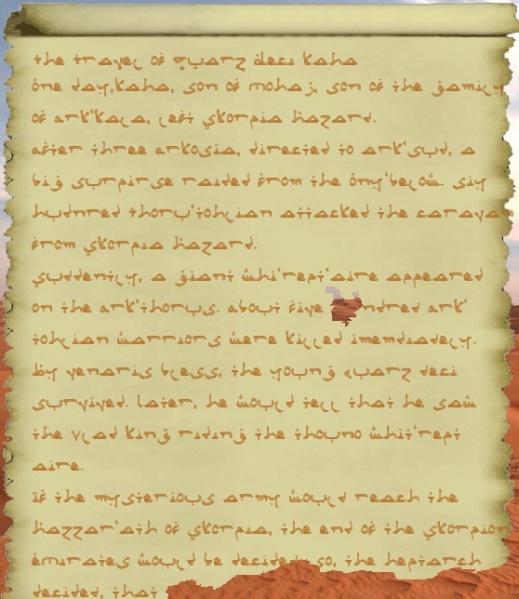 the travel of quarz deci kaha
one day,kaha, son of mohaj, son of the family
of ark'kala, left skorpia hazard.
after three arkosia, directed to ark'sud, a
big surpirse raided from the ony'below. six
hudnred thoru'tohlian attacked the caravan
from skorpia hazard.
suddently, a giant whi'rept'aire appeared
on the ark'thorus. about five ark'
tohlian warriors were killed imemdiadely.
by venaris bless, the young quarz deci
survived. later, he would tell that he saw
the vlad king riding the thouno whit'rept
aire.
if the mysterious army would reach the
hazzar'ath of skorpia, the end of the skorpion
emirates would be decided. so, the heptarch
decided, that